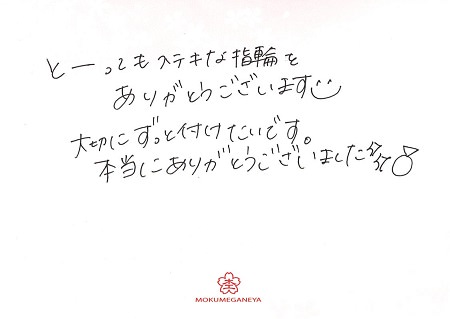 とーってもステキな指輪を
ありがとうございます
大切にずっと付けたいです。
本当にありがとうございました
MOKUMEGANEYA